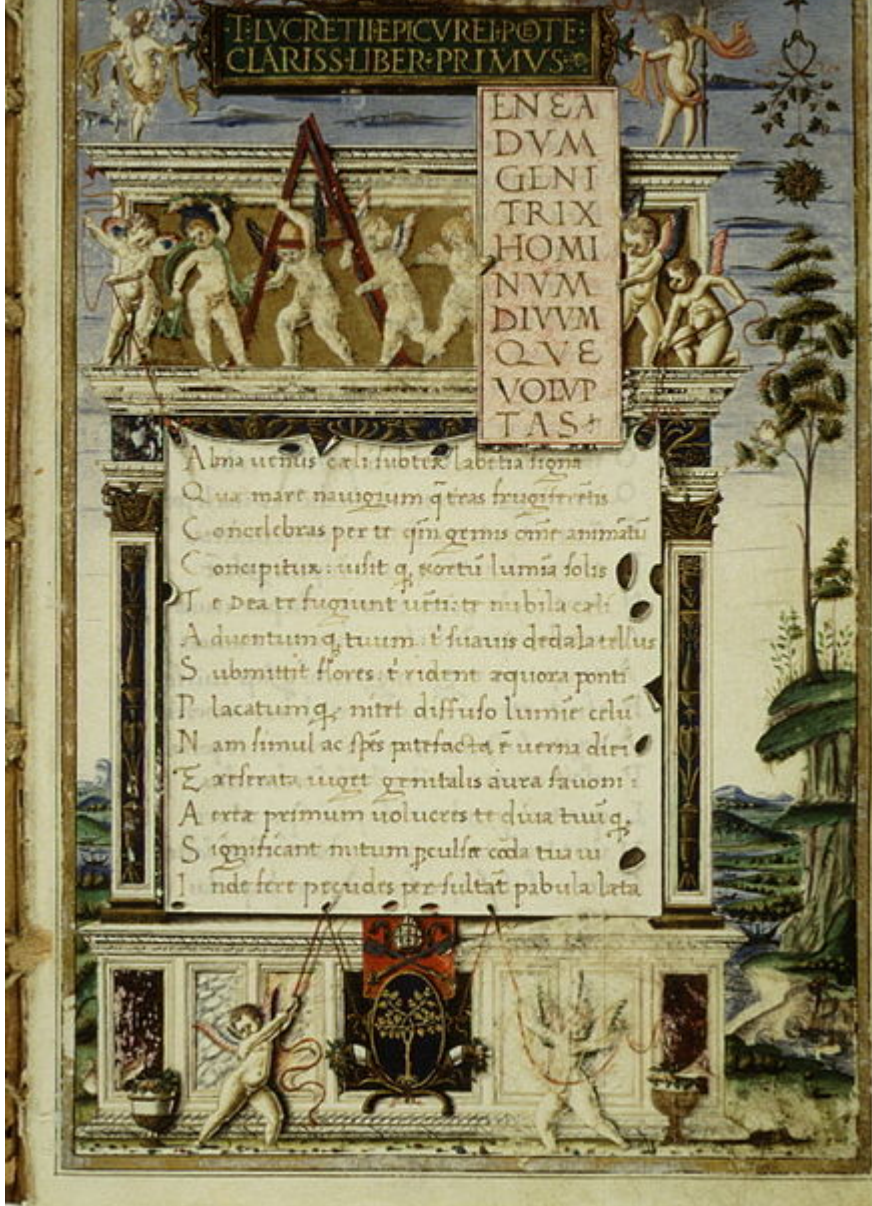 ·T·LVCRETII·EPICVREI·POETE·
CLARISS·LIBER·PRIMVS·
A
ENEA
DVM
GENI
TRIX
HOMI
NVM
DIVVM
QVE
VOLVP
TAS
Alma uenus cæli subter labētia signa
Quæ mare nauigium q̄ teras frugiferētis
Concelebras per te qm̄ genus om̄e animātū
Concipitur: uisit q̨ exortū lumīa solis
Te Dea te fugiunt uēti: te nubila cæli
Aduentumq̨ tuum: t̄ suauis dedala tellus
Submittit flores: t̄ rident æquora ponti
Placatumq̨ nitet diffuso lumīe celū
Nam simul ac sp̄es patefacta ē uerna diei
Et reserata uiget genitalis aura fauoni:
Aeriæ primum uolucres te diua tuūq̨
Significant nutum p̄culsæ coda tua ui
Inde fere pecudes per sultāt pabula læta